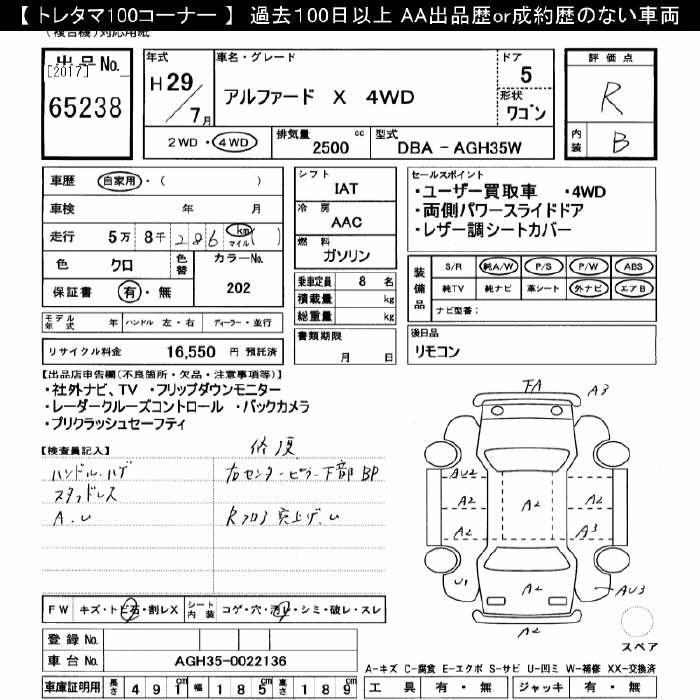 【トレタマ100コーナー】 過去100日以上 AA出品歴or成約歴のない車両
(複合機)対応用紙
出品No.
[2017]
65238
年式
H 29 / 7 月
車名・グレード
アルファード X 4WD
ドア
5
形状
ワゴン
評価点
R
内装
B
2WD・4WD
排気量
2500 cc
型式
DBA - AGH35W
車歴 自家用・( )
車検 年 月
走行 5万 8千 286 km マイル ( )
色 クロ 色替 カラーNo. 202
保証書 有・無
シフト
IAT
冷房
AAC
燃料
ガソリン
乗車定員 8 名
積載量 kg
総重量 kg
書類期限
月 日
セールスポイント
・ユーザー買取車 ・4WD
・両側パワースライドドア
・レザー調シートカバー
装備品
S/R 純A/W P/S P/W ABS
純TV 純ナビ 革シート 外ナビ エアB
ナビ型番:
モデル年式 年 ハンドル 左・右 ディーラー・並行
リサイクル料金 16,550 円 預託済
後日品
リモコン
【出品店申告欄(不良箇所・欠品・注意事項等)】
・社外ナビ、TV ・フリップダウンモニター
・レーダークルーズコントロール ・バックカメラ
・プリクラッシュセーフティ
【検査員記入】
修復
ハンドル.ハゲ
右センターピラー下部 BP
スタッドレス
A.U
Rフロア突上げ.U
FA
A3
AU2
A2
A2
A2
A2
A3
U1
A2
AU3
A2
スペア
FW キズ・トビ石・割レX
シート内装 コゲ・穴・汚レ・シミ・破レ・スレ
登録No.
車台No. AGH35-0022136
車庫証明用 長さ 491 cm 幅 185 cm 高さ 189 cm
A-キズ C-腐食 E-エクボ S-サビ U-凹ミ W-補修 XX-交換済
工具 有・無 ジャッキ 有・無